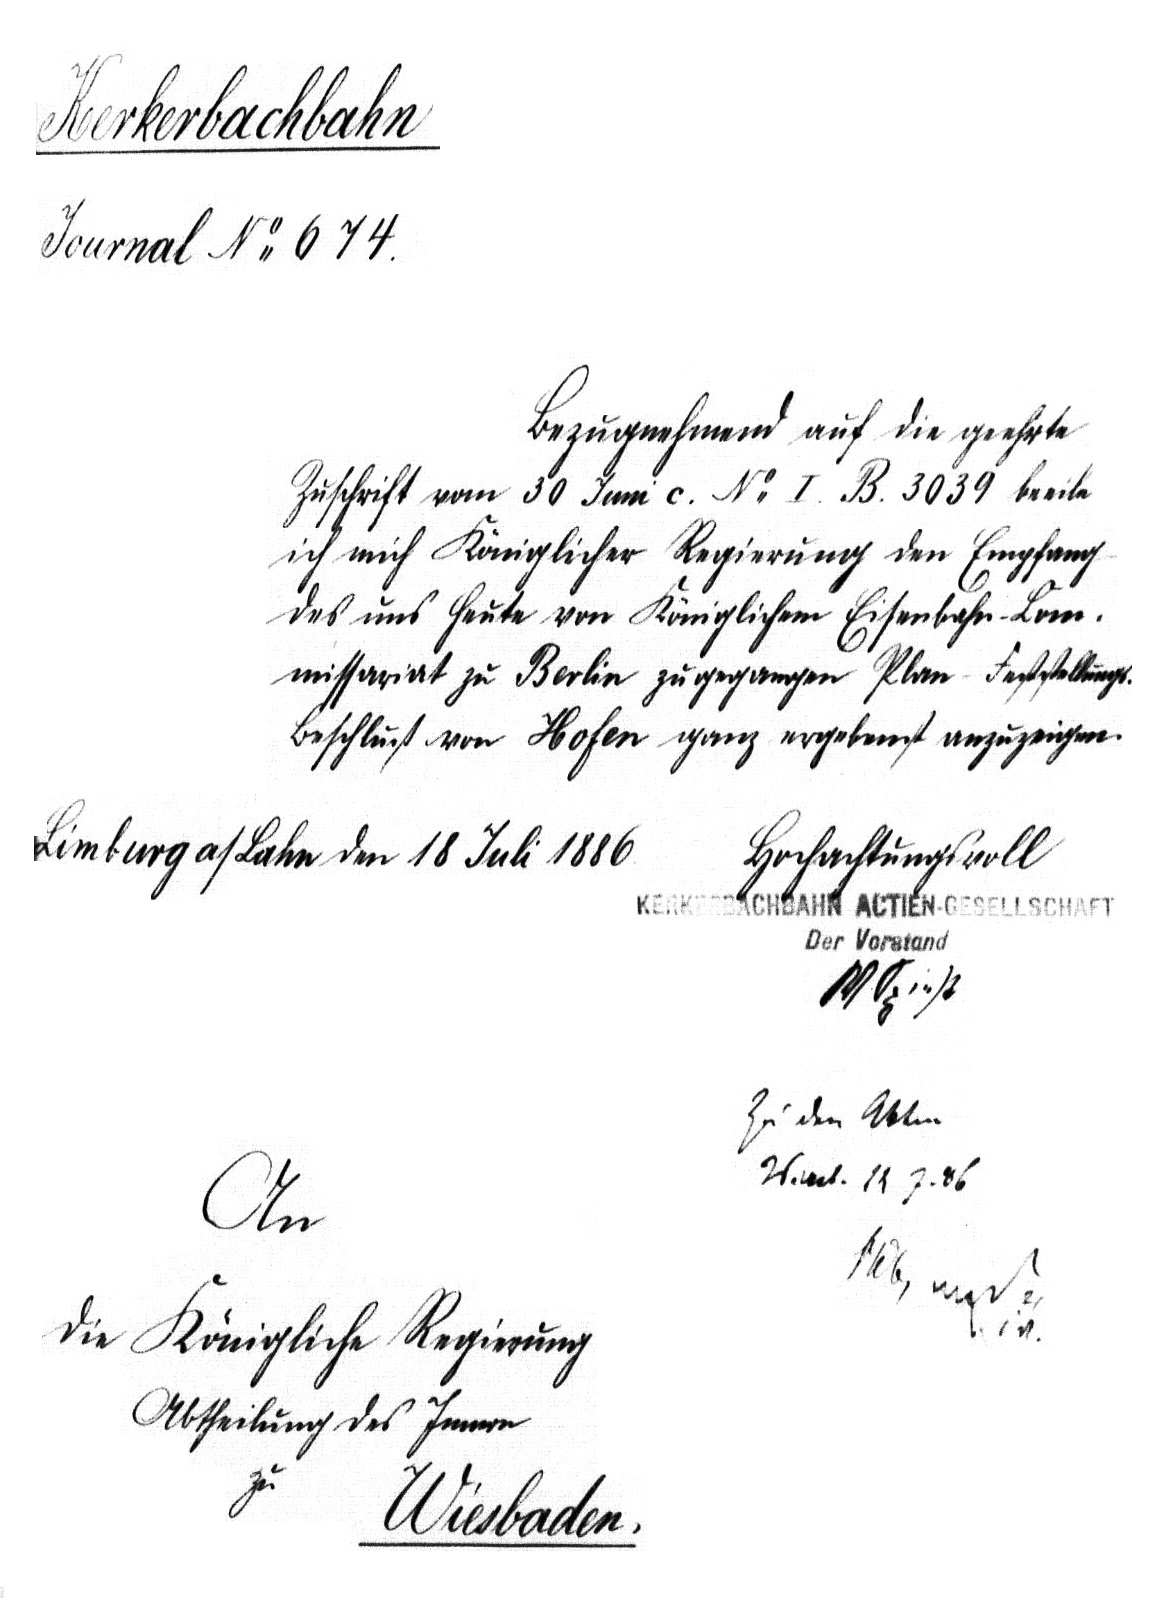 Kerkerbachbahn
Journal No 674.
Bezugnehmend auf die geehrte
Zuschrift vom 30 Juni c. No I. B. 3039 beeile
ich mich Königlicher Regierung den Empfang
des uns heute von Königlichem Eisenbahn-Com-
missariat zu Berlin zugegangen Plan-Feststellungs-
Beschluß von Hofen ganz ergebenst anzuzeigen.
Limburg a/Lahn den 18 Juli 1886
Hochachtungsvoll
KERKERBACHBAHN ACTIEN-GESELLSCHAFT
Der Vorstand
Zu den Akten
7.86
An
die Königliche Regierung
Abtheilung des Innern
zu
Wiesbaden.